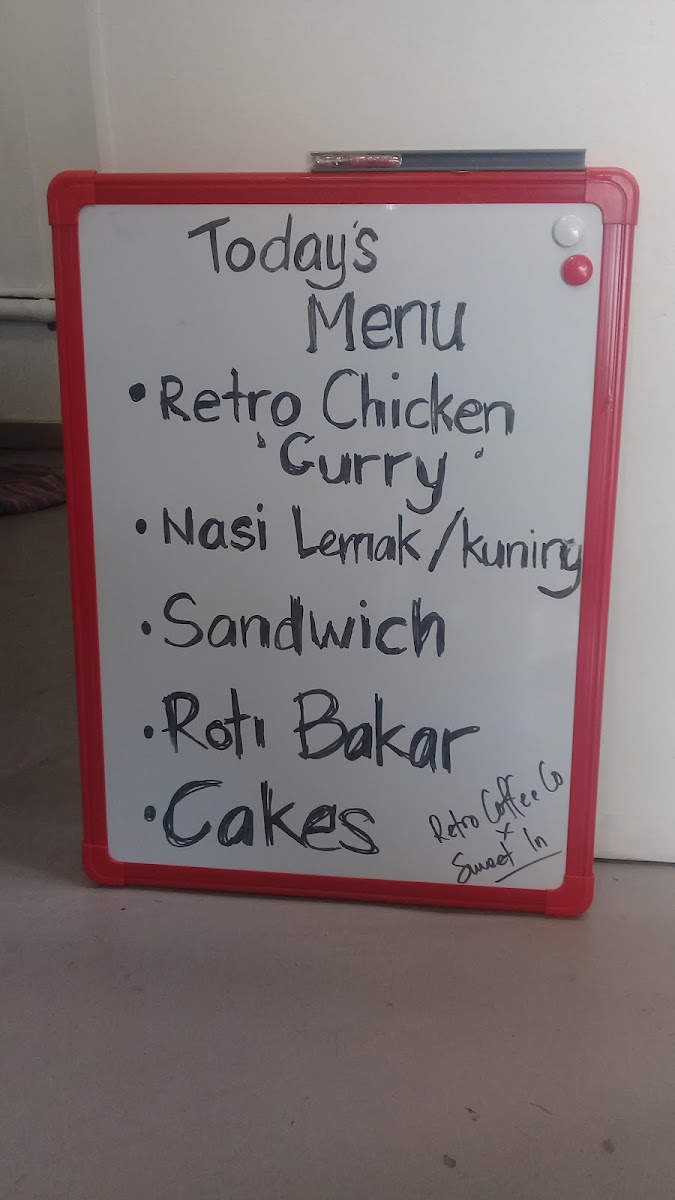 Today's
Menu
• Retro Chicken
'Curry'
• Nasi Lemak/kuning
• Sandwich
• Roti Bakar
• Cakes
Retro Coffee Co
x
Sunset In